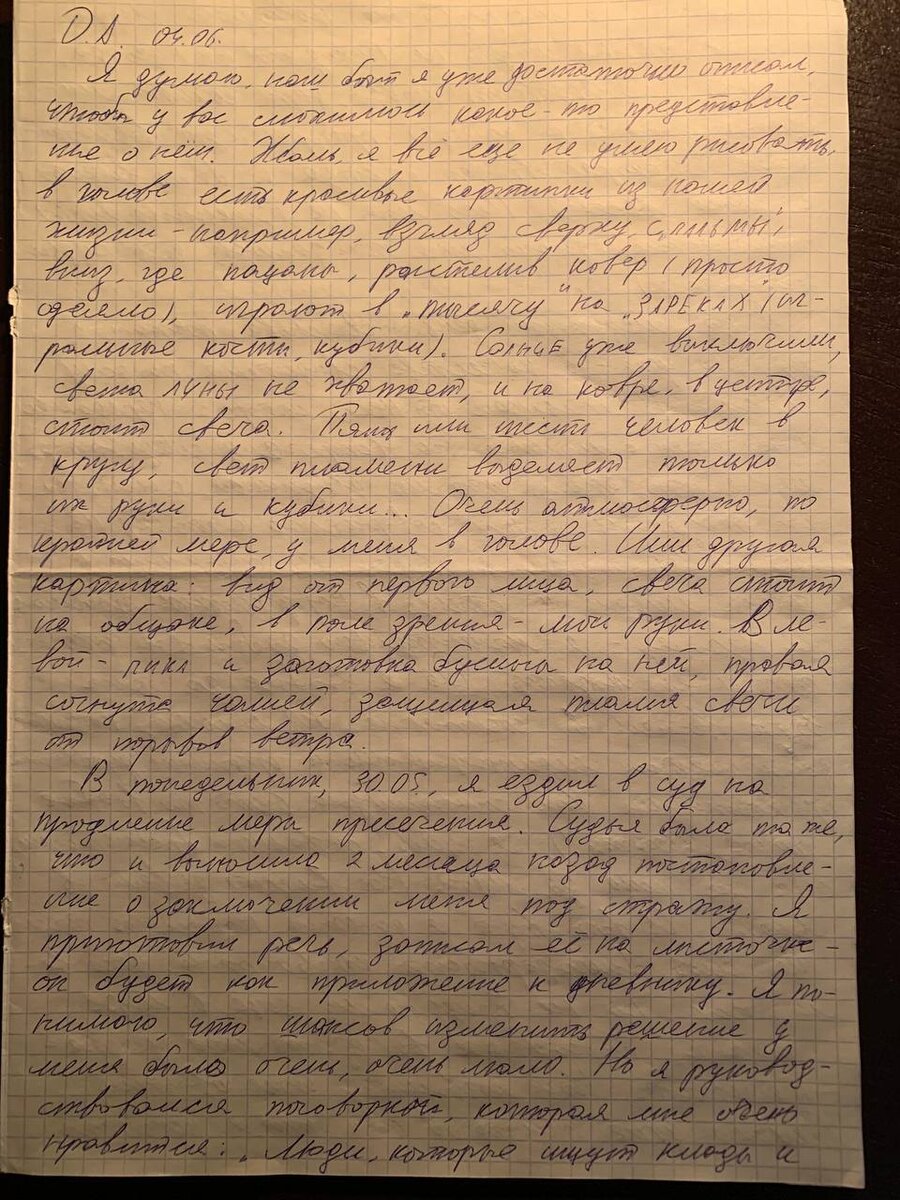 D.A. 04.06.
Я думаю, наш быт я уже достаточно описал,
чтобы у вас сложилось какое-то представле-
ние о нём. Жаль, я всё ещё не умею рисовать,
в голове есть красивые картинки из нашей
жизни - например, взгляд сверху, с "пальмы",
вниз, где пацаны, расстелив ковёр (просто
одеяло), играют в "тысячу" на "ЗАРЕКАХ" (иг-
ральные кости, кубики). Солнце уже выключили,
света луны не хватает, и на ковре, в центре,
стоит свеча. Пять или шесть человек в
кругу, свет пламени выделяет только
их руки и кубики... Очень атмосферно, по
крайней мере, у меня в голове. Или другая
картинка: вид от первого лица, свеча стоит
на общаке, в поле зрения - мои руки. В ле-
вой - и заготовка на ней, правая
согнута чашей, защищая пламя свечи
от порывов ветра.
В понедельник, 30.05, я ездил в суд на
продление меры пресечения. Судья была та же,
что и выносила 2 месяца назад постановле-
ние о заключении меня под стражу. Я
приготовил речь, записал её на листочке -
он будет как приложение к дневнику. Я по-
нимаю, что шансов изменить решение у
меня было очень, очень мало. Но я руковод-
ствовался поговоркой, которая мне очень
нравится: "Люди, которые ищут клады и